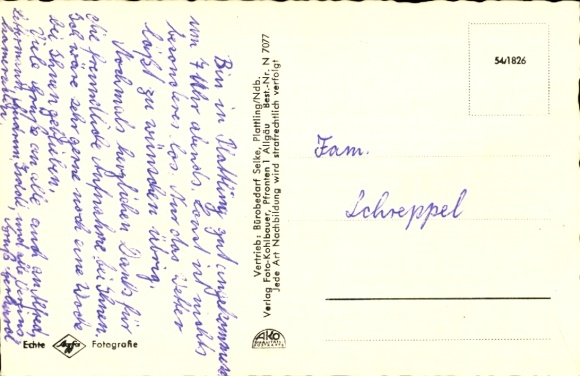 Bin in Plattling gut angekommen
um 7 Uhr abends. Sonst ist nichts
besonderes los. Nur das Wetter
läßt zu wünschen übrig.
Nochmals herzlichen Dank für
die freundliche Aufnahme bei Ihnen.
Ich wäre sehr gerne noch eine Woche
bei Ihnen geblieben.
Viele Grüße an alle auch an
und alle
Vertrieb: Bürobedarf Seike, Plattling/Ndb.
Verlag Foto-Kohlbauer, Pfronten 1 Allgäu Best.-Nr. N 7077
Jede Art Nachbildung wird strafrechtlich verfolgt
54/1826
Fam.
Schreppel
Echte Agfa Fotografie
AKO